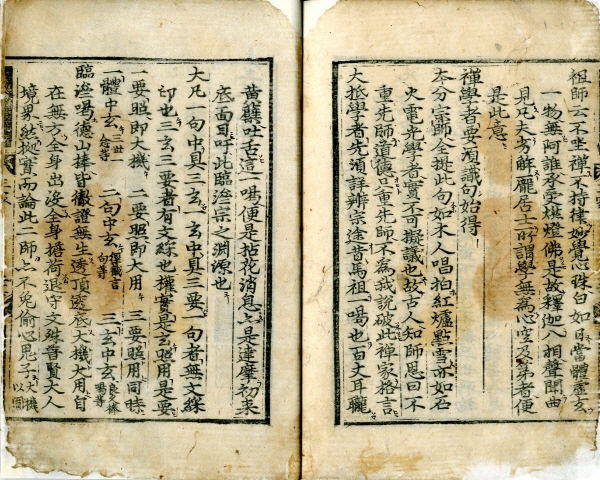 祖師云不坐禪不持律妙覺心珠白如日當體虛玄
一物無阿誰承受燃燈佛是故釋伽入相聲聞曲
見凡夫方解龐居士所謂學無爲心空及第者便
是此意
禪學者要須識句始得
本分宗師全提此句如木人唱拍紅爐點雪亦如石
火電光學者實不可擬議也故古人知師恩曰不
重先師道德只重先師不爲我說破此禪家格言
大抵學者先須詳辨宗途昔馬祖一喝也百丈耳聾
黃蘗吐舌這一喝便是拈花消息亠是達摩初來
底面目吁此臨濟宗之淵源也
大凡一句中具三玄一玄中具三要一句者無文綵
印也三玄三要者有文綵也權實是玄照用是要
一要照即大機 二要照即大用 三要照用同時
一體中玄三世一念等 二句中玄徑截言句等 三玄中玄良久棒喝等
臨濟喝德山捧皆徹證無生透頂透底大機大用自
在無方全身出沒全身擔荷退守文殊普賢大人
境界然據實而論此二師亠不免偷心鬼子大機以圓